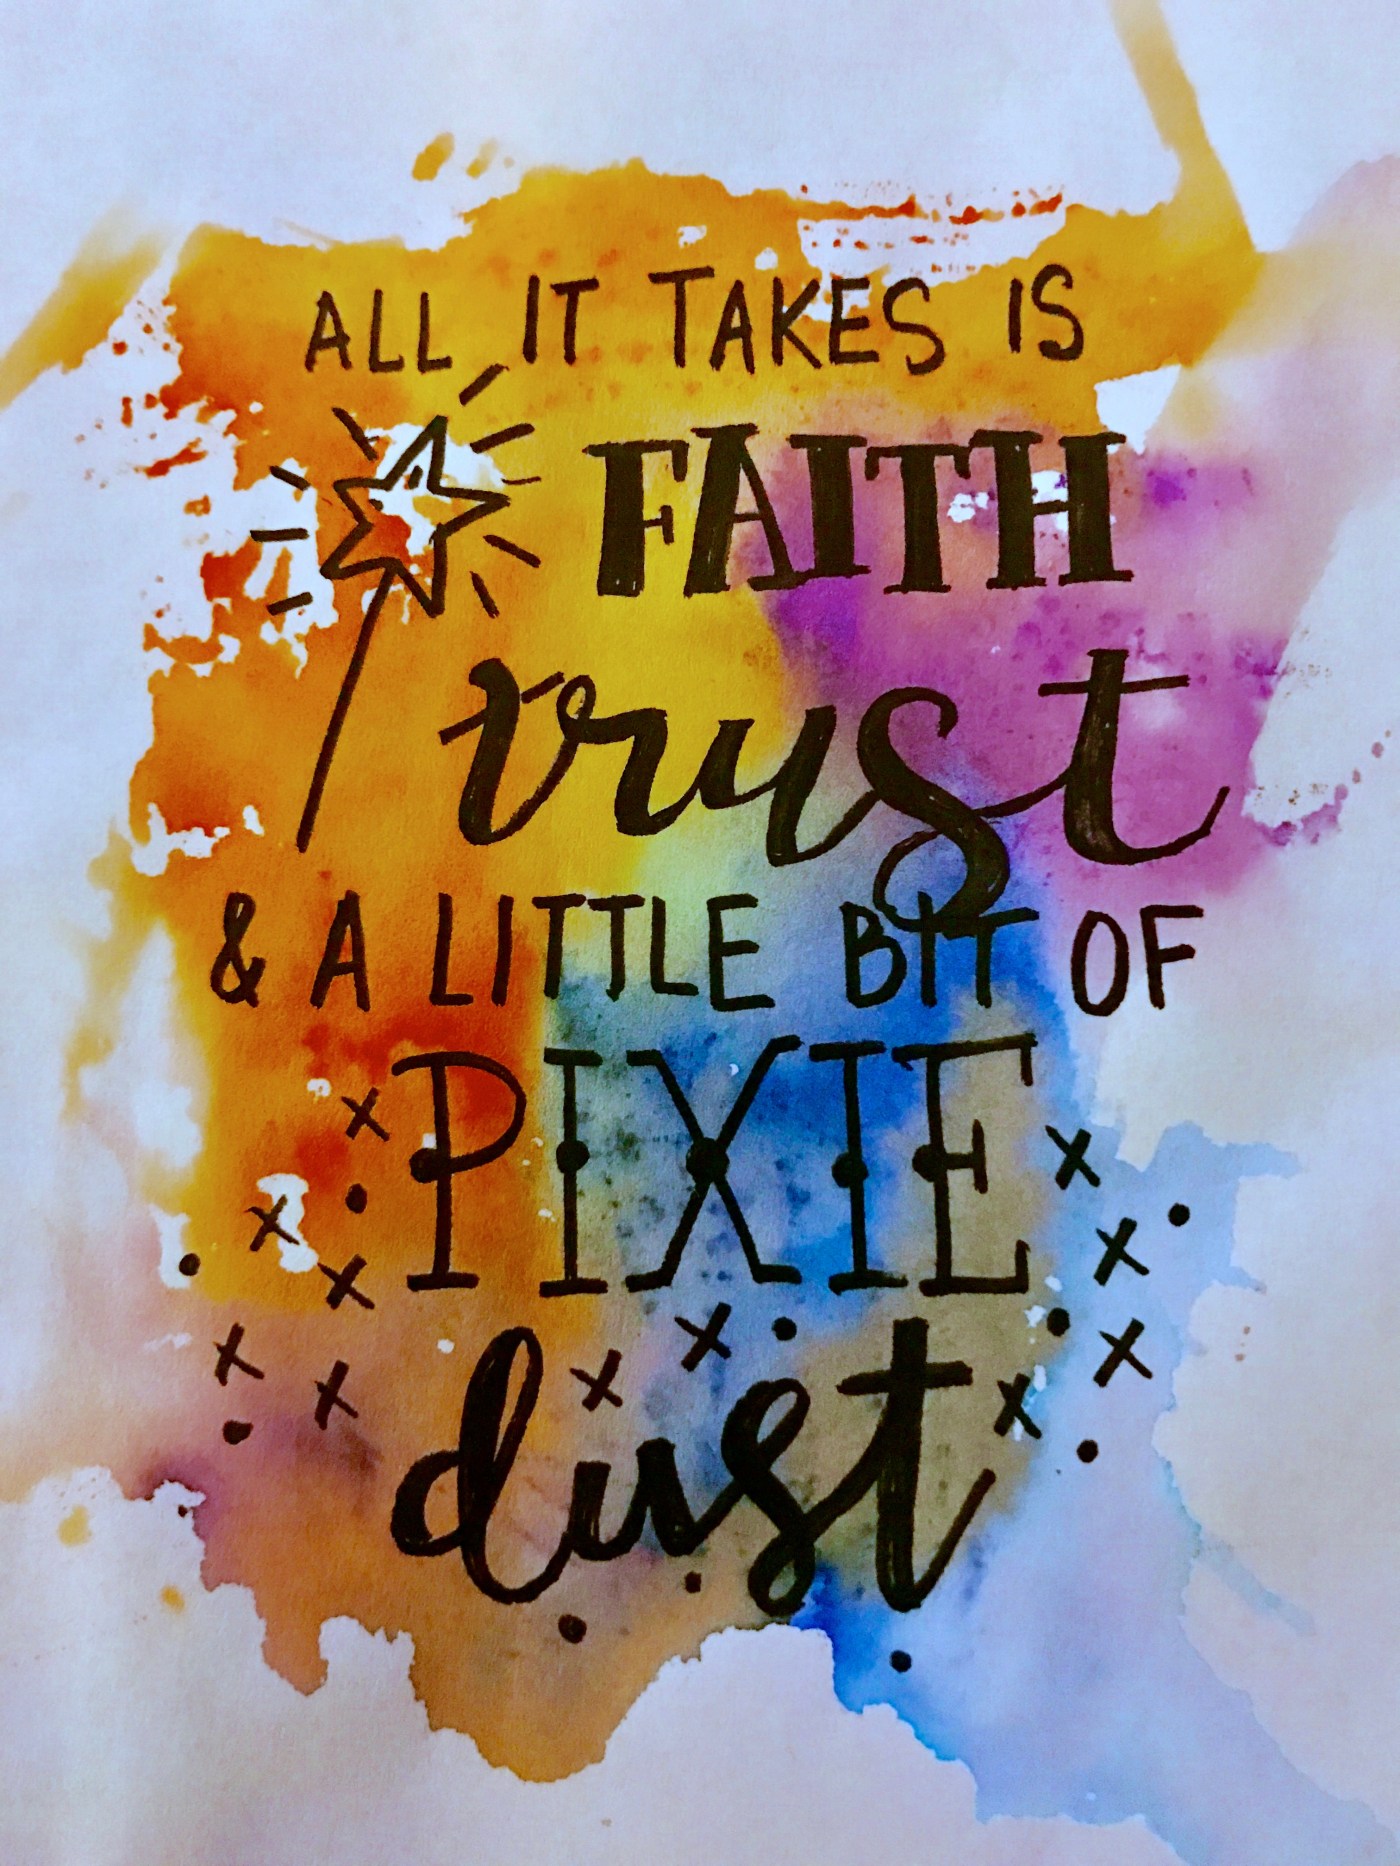 ALL IT TAKES IS
FAITH
trust
& A LITTLE BIT OF
PIXIE
dust